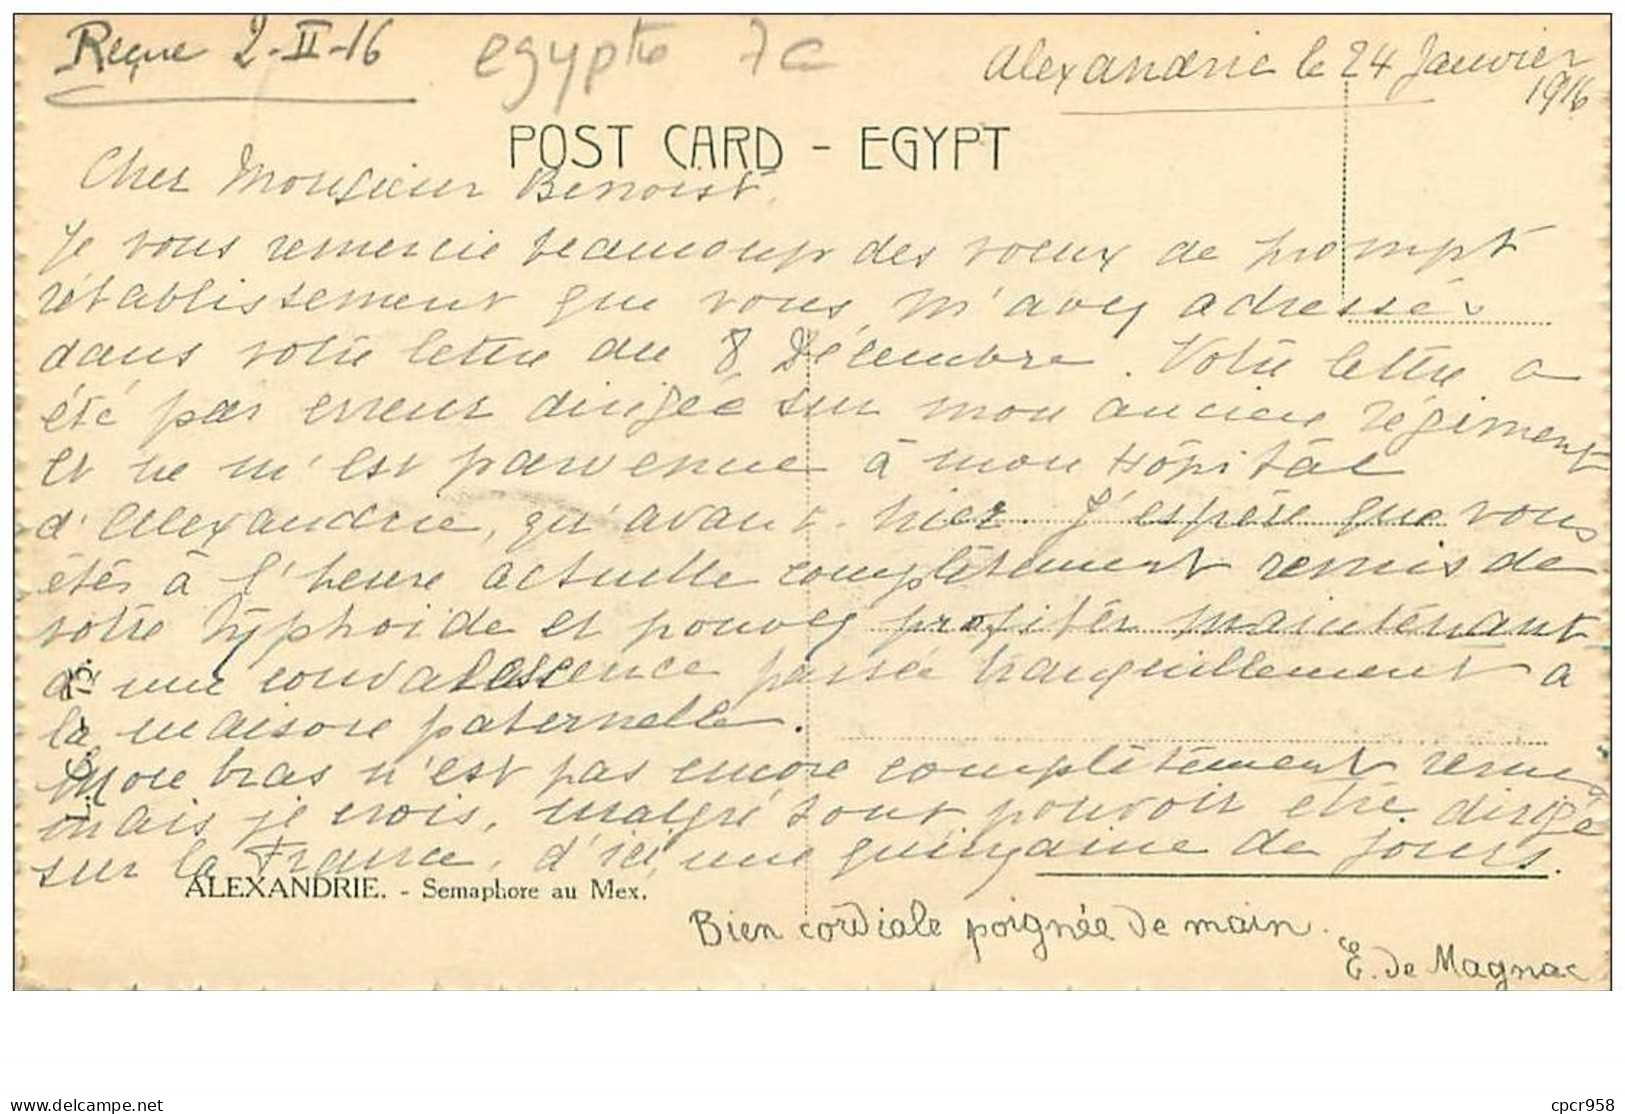 Reçue 2-II-16
egypte 7c
Alexandrie le 24 Janvier
1916
POST CARD - EGYPT
Cher Monsieur Benoist,
Je vous remercie beaucoup des voeux de prompt
rétablissement que vous m'avez adressés
dans votre lettre du 8 Décembre. Votre lettre a
été par erreur dirigée sur mon ancien régiment
et ne m'est parvenue à mon Hôpital
d'Alexandrie, qu'avant-hier. J'espère que vous
étés à l'heure actuelle complètement remis de
votre typhoïde et pouvez profiter maintenant
d'une convalescence passée tranquillement à
la maison paternelle.
Mon bras n'est pas encore complètement remis
mais je crois, malgré tout pouvoir être dirigé
sur la France, d'ici une quinzaine de jours.
ALEXANDRIE. - Semaphore au Mex.
Bien cordiale poignée de main.
E. de Magnac
cpcr958